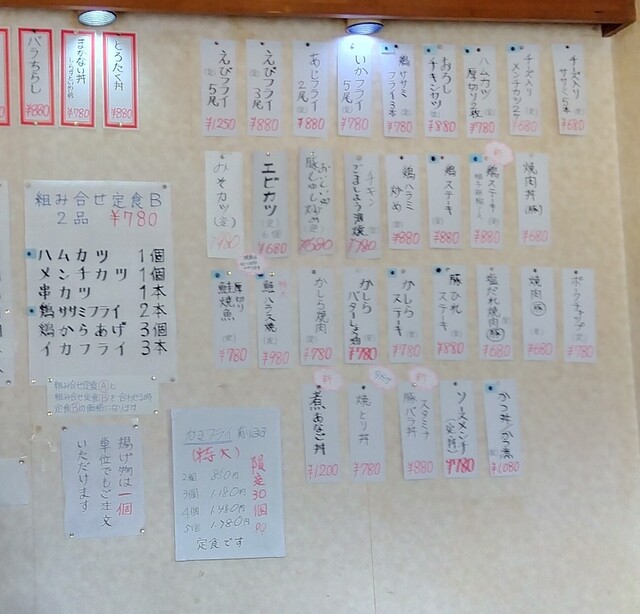 とろたく丼
¥880
まかない丼
¥780
バラちらし
¥880
チーズ入り
ササミ5本
¥680
チーズ入り
メンチカツ2ケ
¥680
ハムカツ
厚切り2枚
¥780
おろし
チキンカツ
¥880
鶏ササミ
フライ3本
¥780
いかフライ
5尾
¥780
あじフライ
2尾
¥880
えびフライ
3尾
¥880
えびフライ
5尾
¥1250
焼肉丼(豚)
¥680
鶏ステーキ
¥880
鶏ステーキ
¥880
鶏ハラミ
炒め
¥880
チキン
ごましょう油焼
¥780
¥580
エビカツ
¥680
みそカツ(定)
ポークチャップ
¥780
焼肉(豚)
¥680
塩だれ焼肉(豚)
¥680
豚ひれ
ステーキ
¥880
かしら
ステーキ
¥780
かしら
バターしょう油
¥780
かしら焼肉
¥780
鮭ハラス焼
¥980
厚切り
鮭焼魚
¥780
かつ丼/かつ煮
¥1,080
ソースメンチ
¥780
スタミナ
豚バラ丼
¥880
焼とり丼
¥780
煮あなご丼
¥1200
組み合せ定食B
2品 ¥780
ハムカツ 1個
メンチカツ 1個
串カツ 1本
鶏ササミフライ 2本
鶏からあげ 3個
イカフライ 3本
組み合せ定食Ⓐと
組み合せ定食Ⓑを合わせる時
定食Ⓑの価格になります
揚げ物は一個
単位でもご注文
いただけます
(特大)
限定30個
2個 850円
3個 1,180円
4個 1,480円
5個 1,780円
定食です